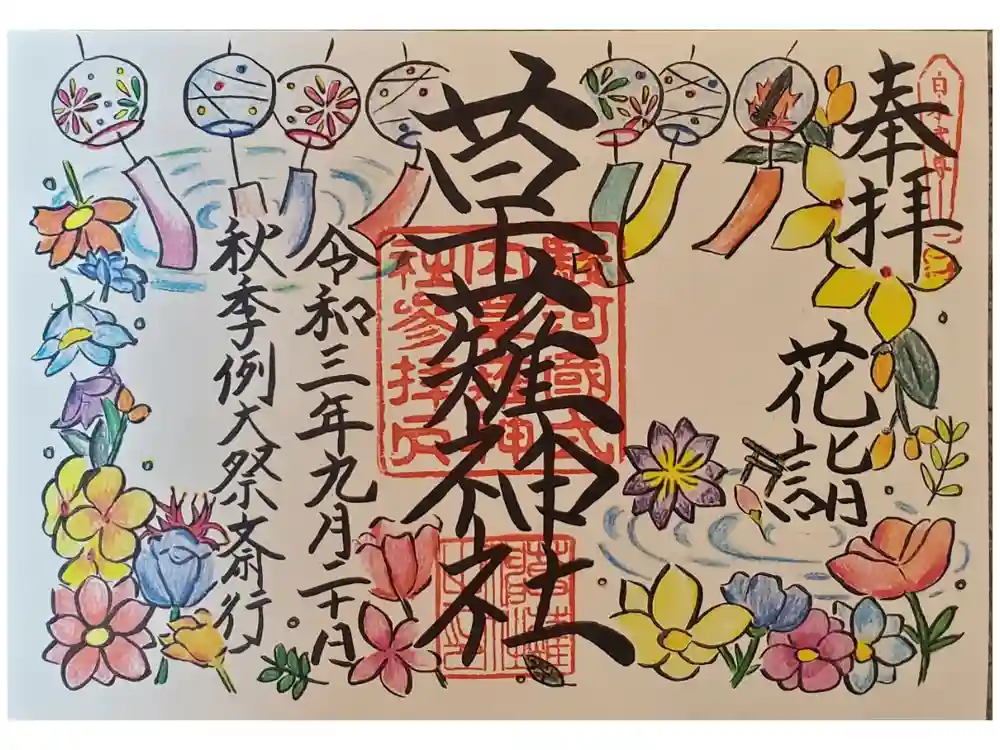 奉拝
花詣
草薙神社
令和三年九月二十日
秋季例大祭斎行
駿河國式
内草薙神
社参拝之